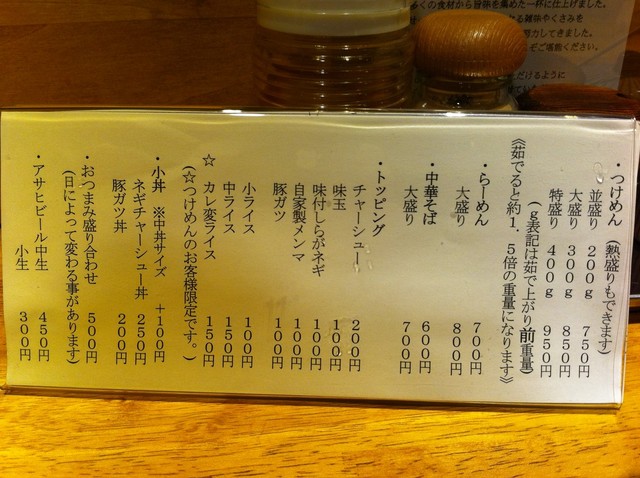 ・つけめん (熱盛りもできます)
並盛り 200g 750円
大盛り 300g 850円
特盛り 400g 950円
(g表記は茹で上がり前重量)
《茹でると約1.5倍の重量になります》
・らーめん 700円
大盛り 800円
・中華そば 600円
大盛り 700円
・トッピング
チャーシュー 200円
味玉 100円
味付しらがネギ 100円
自家製メンマ 100円
豚ガツ 100円
小ライス 100円
中ライス 150円
☆ カレ変ライス 150円
(☆つけめんのお客様限定です。)
・小丼 ※中丼サイズ +100円
ネギチャーシュー丼 250円
豚ガツ丼 200円
・おつまみ盛り合わせ 500円
(日によって変わる事があります)
・アサヒビール中生 450円
小生 300円